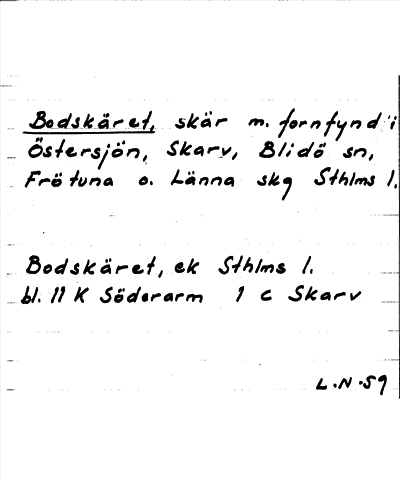 Bodskäret, skär m. fornfynd i
Östersjön, Skarv, Blidö sn,
Frötuna o. Länna skg Sthlms l.
Bodskäret, ek Sthlms l.
bl. 11 K Söderarm 1 c Skarv
L.N.59